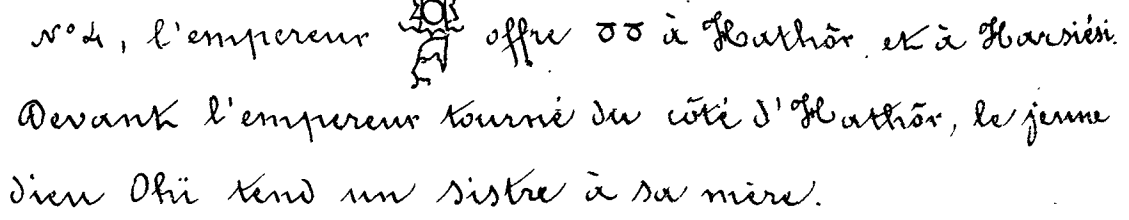 N° 4, l'empereur offre ꝹꝹ à Hathôr et à Harsiési.
Devant l'empereur tourné du côté d'Hathôr, le jeune
dieu Ohü tend un sistre à sa mère.